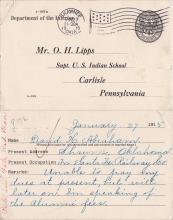 Department of the Interior
Mr. O. H. Lipps
Supt. U. S. Indian School
Carlisle
Pennsylvania
January 27 1915
Name David H. Abraham
Present Address Shawnee, Oklahoma
Present Occupation In Santa Fe Railway
Remarks Unable to pay any
dues at present, but will
later on. I'm speaking of
the Alumni fees.